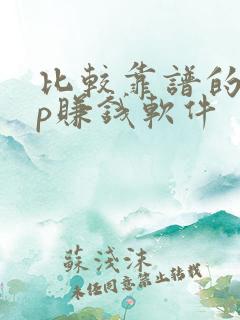 比較靠譜的
p賺錢軟件
蘇淺沫
未經同意禁止轉載